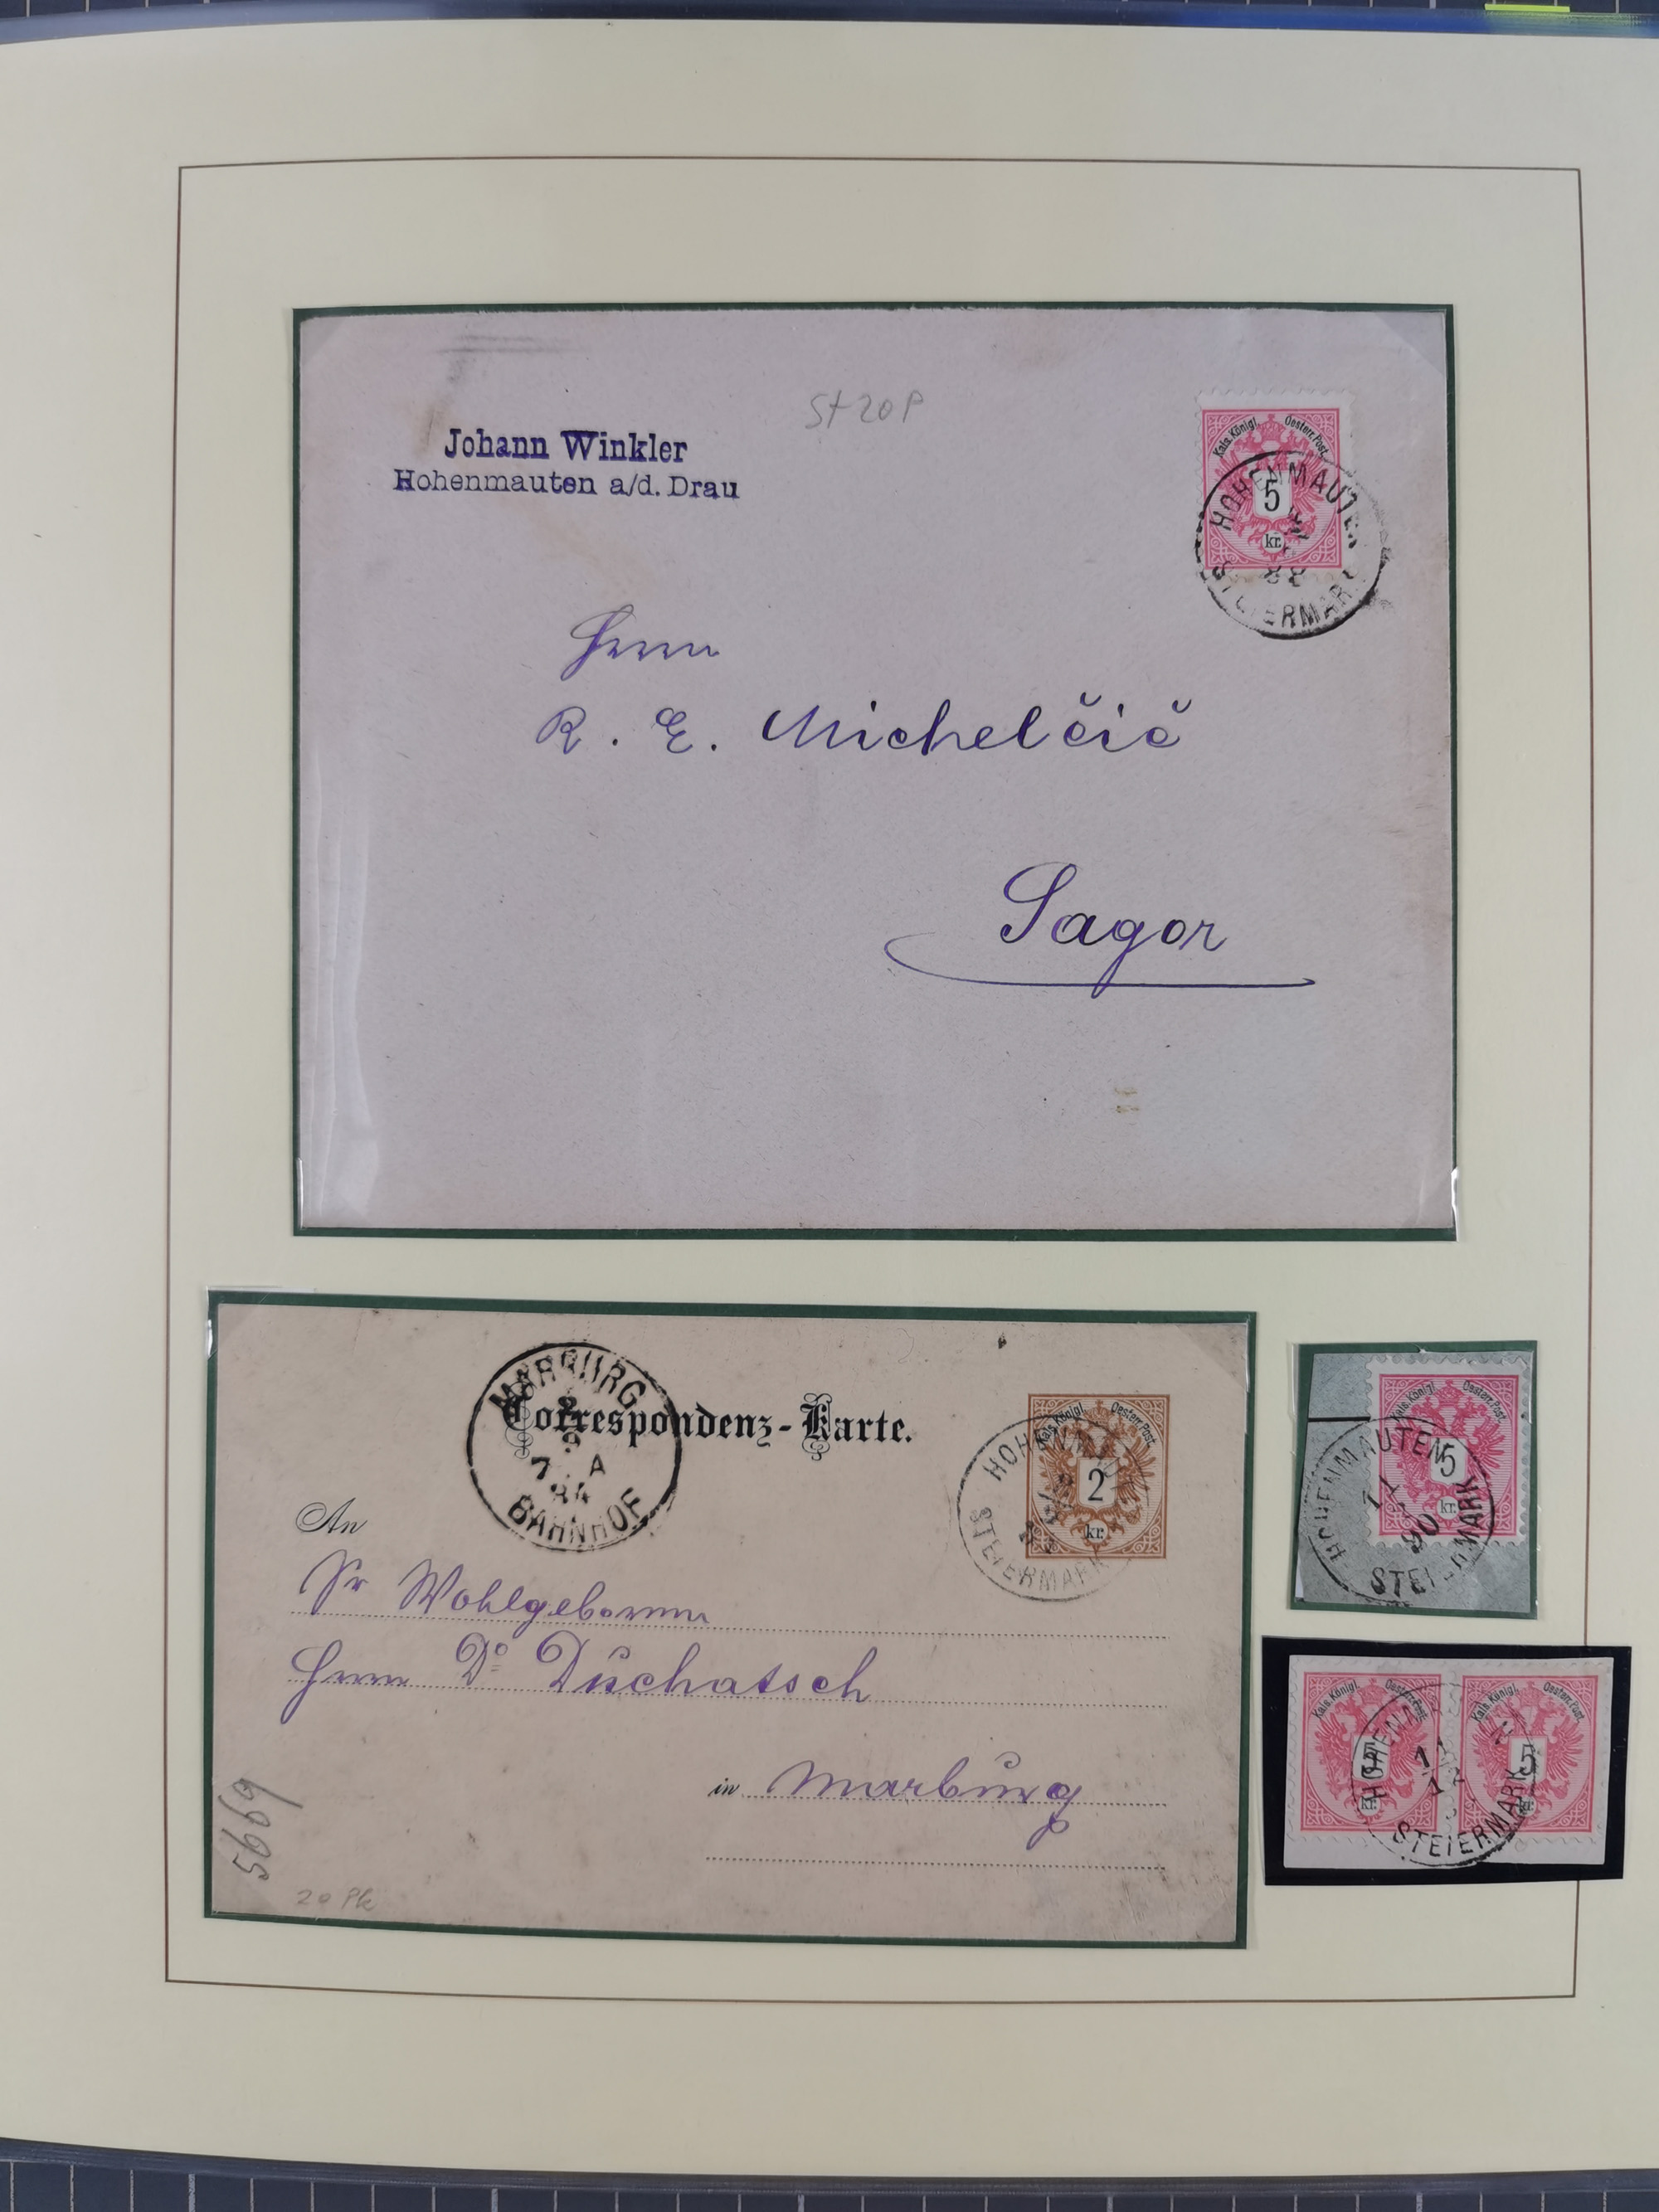 St 20 P
Johann Winkler
Hohenmauten a/d. Drau
Kais. Königl. Oesterr. Post.
5
kr.
HOHENMAUTEN
88
STEIERMARK
Herrn
R. E. Michelčič
Sagor
MARBURG
2
9
7 A
84
BAHNHOF
Correspondenz-Karte.
Kais. Königl. Oesterr. Post.
2
kr.
HOHENMAU
STEIERMARK
An
Sr Wohlgeboren
Herrn Dr Duchatsch
in Marburg
5669
20 Pk
Kais. Königl. Oesterr. Post.
5
kr.
HOHENMAUTEN
90
STEIERMARK
Kais. Königl. Oesterr. Post.
5
kr.
Kais. Königl. Oesterr. Post.
5
kr.
HOHENM N
11
12
STEIERMARK